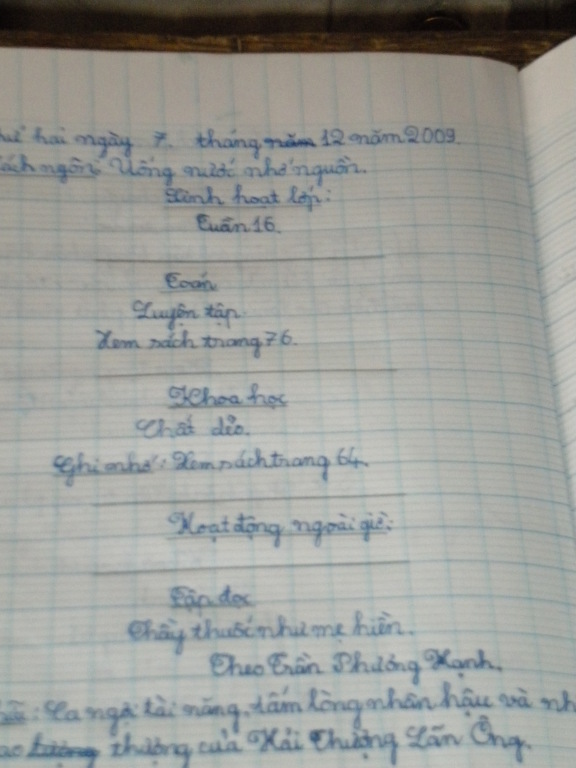 hai ngày 7. tháng năm 12 năm 2009.
ách ngôn: Uống nước nhớ nguồn.
Sinh hoạt lớp:
Tuần 16.
Toán
Luyện tập.
Xem sách trang 76.
Khoa học
Chất dẻo.
Ghi nhớ: Xem sách trang 64.
Hoạt động ngoài giờ:
Tập đọc
Thầy thuốc như mẹ hiền.
Theo Trần Phương Hạnh.
: Ca ngợi tài năng, tấm lòng nhân hậu và nh
ao thượng của Hải Thượng Lãn Ông.